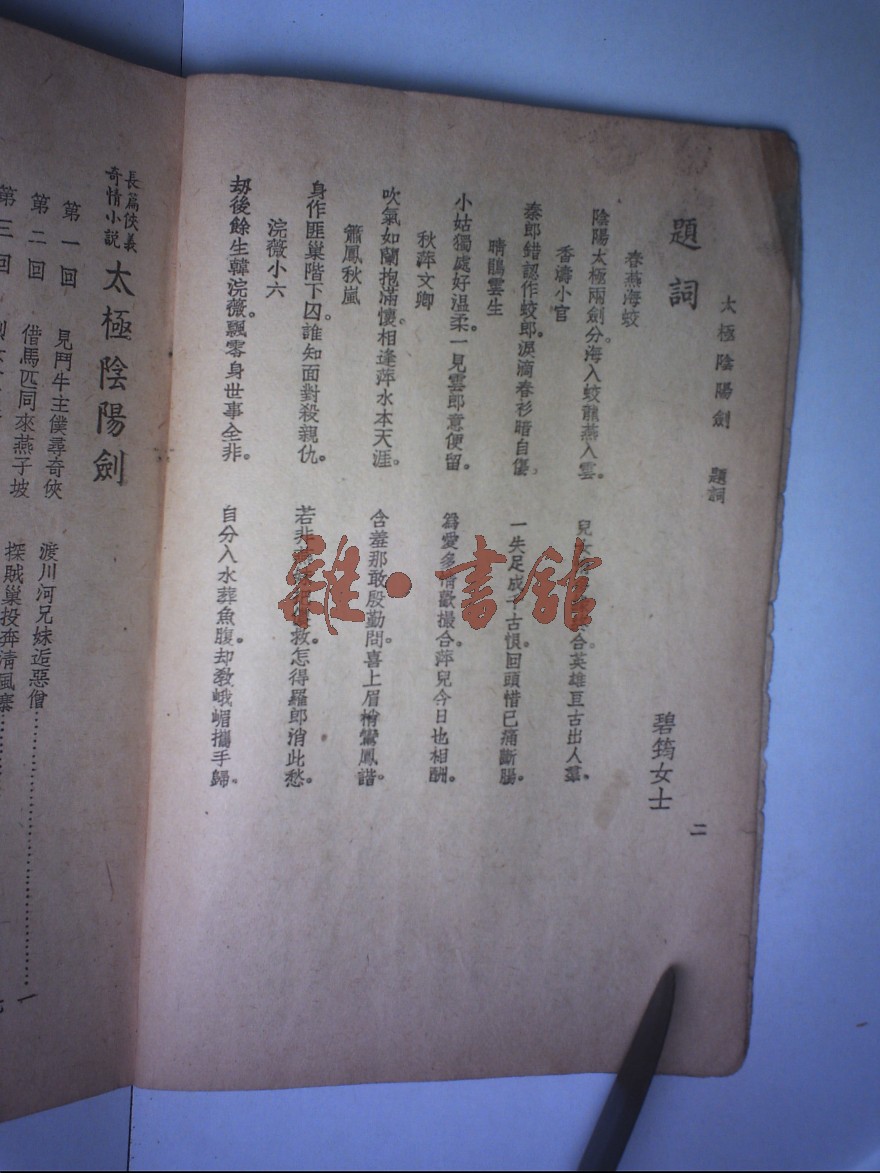 太極陰陽劍　題詞
二
題詞
碧筠女士
春燕海蛟
陰陽太極兩劍分。海入蛟龍燕入雲。
合英雄亘古出人羣。
香濤小官
秦郎錯認作蛟郎。淚滴春衫暗自傷。
一失足成千古恨。回頭惜已痛斷腸。
晴鵑雲生
小姑獨處好溫柔。一見雲郎意便留。
爲愛多情歡撮合。萍兒今日也相酬。
秋萍文卿
吹氣如蘭抱滿懷。相逢萍水本天涯。
含羞那敢殷勤問。喜上眉梢鸞鳳諧。
簫鳳秋嵐
身作匪巢階下囚。誰知面對殺親仇。
若非救。怎得羅郎消此愁。
浣薇小六
刼後餘生韓浣薇。飄零身世事全非。
自分入水葬魚腹。却教峨嵋攜手歸。
雜·書館
長篇俠義
奇情小說
太極陰陽劍
第一回　見鬥牛主僕尋奇俠　渡川河兄妹逅惡僧……一
第二回　借馬匹同來燕子坡　探賊巢投奔清風寨……
第三回